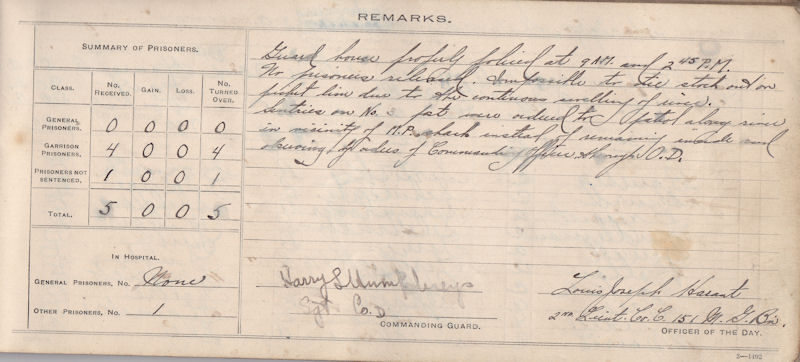 REMARKS.
SUMMARY OF PRISONERS.
CLASS. No. RECEIVED. GAIN. LOSS. No. TURNED OVER.
GENERAL PRISONERS. 0 0 0 0
GARRISON PRISONERS. 4 0 0 4
PRISONERS NOT SENTENCED. 1 0 0 1
TOTAL. 5 0 0 5
IN HOSPITAL.
GENERAL PRISONERS, No. None
OTHER PRISONERS, No. 1
Guard house properly policed at 9 A.M. and 2 45 P.M.
No prisoners released. Impossible to tie stock out on
picket line due to the continuous swelling of river.
Sentries on No. 3 post were ordered to patrol along river
in vicinity of M.P. shack instead of remaining inside and
observing by orders of Commanding Officer through O.D.
Harry L Humphreys
Sgt Co. D
COMMANDING GUARD.
Louis Joseph
2nd Lieut. Co. C. 151 M. G. Bn.
OFFICER OF THE DAY.
3—1492